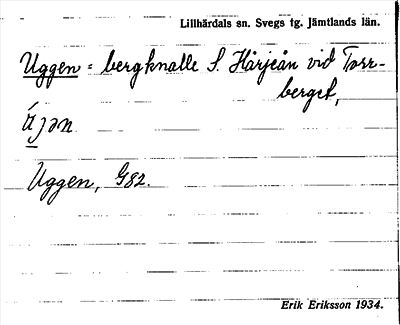 Lillhärdals sn. Svegs tg. Jämtlands län.
Uggen = bergknalle S. Härjeån vid Torr-
berget,
Uggen, G82.
Erik Eriksson 1934.